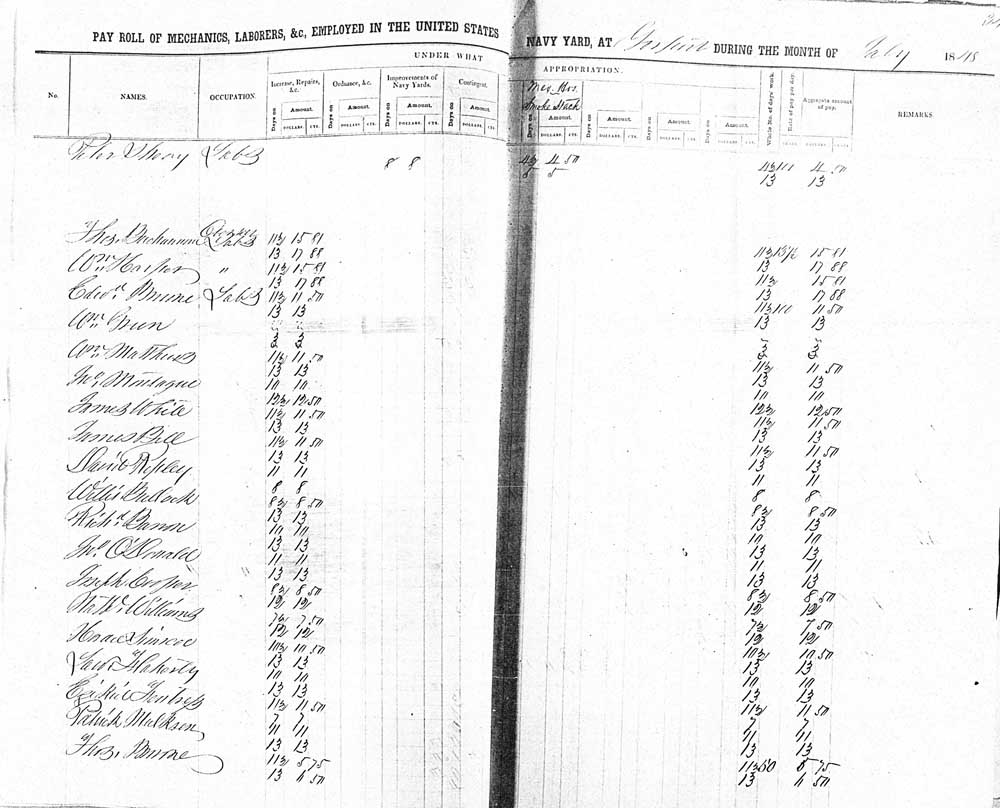 PAY ROLL OF MECHANICS, LABORERS, &c, EMPLOYED IN THE UNITED STATES NAVY YARD, AT Gosport DURING THE MONTH OF July 1848
UNDER WHAT APPROPRIATION.
No. NAMES. OCCUPATION. Increase, Repairs, &c. Ordnance, &c. Improvements of Navy Yards. Contingent. Smoke Stack Whole No. of days work. Rate of pay per day. Aggregate amount of pay. REMARKS.
Days on Amount. Days on Amount. Days on Amount. Days on Amount. Days on Amount. Days on Amount. Days on Amount. Days on Amount.
DOLLARS. CTS. DOLLARS. CTS. DOLLARS. CTS. DOLLARS. CTS. DOLLARS. CTS. DOLLARS. CTS. DOLLARS. CTS. DOLLARS. CTS. DOLLARS. CTS.
Labs 4½ 4 50 4½ 100 4 50
8 8 13 13
Thos. Buchannan 11½ 15 81 11½ 15 81
13 17 88 13 17 88
Wm. Harper " 11½ 15 81 11½ 15 81
13 17 88 13 17 88
Edwd. Brume Labs 11½ 11 50 11½ 100 11 50
13 13 13 13
Wm. Green
3 3 3 3
Wm. Matthews 11½ 11 50 11½ 11 50
13 13 13 13
Jno. Montague 10 10 10 10
12½ 12 50 12½ 12 50
James White 11½ 11 50 11½ 11 50
13 13 13 13
James Bell 11½ 11 50 11½ 11 50
13 13 13 13
David Ropley 11 11 11 11
8 8 8 8
Willis Bullock 8½ 8 50 8½ 8 50
13 13 13 13
Richd. Barron 10 10 10 10
13 13 13 13
Jno. O'Donald 11 11 11 11
13 13 13 13
Joseph Cooper 8½ 8 50 8½ 8 50
12 12 12 12
Williams 7½ 7 50 7½ 7 50
12 12 12 12
Horace Simcoe 10½ 10 50 10½ 10 50
13 13 13 13
Flaherty 10 10 10 10
13 13 13 13
Ezekiel Fentress 11½ 11 50 11½ 11 50
7 7 7 7
Patrick 11 11 11 11
13 13 13 13
Thos. 11½ 5 75 11½ 50 5 75
13 6 50 13 6 50